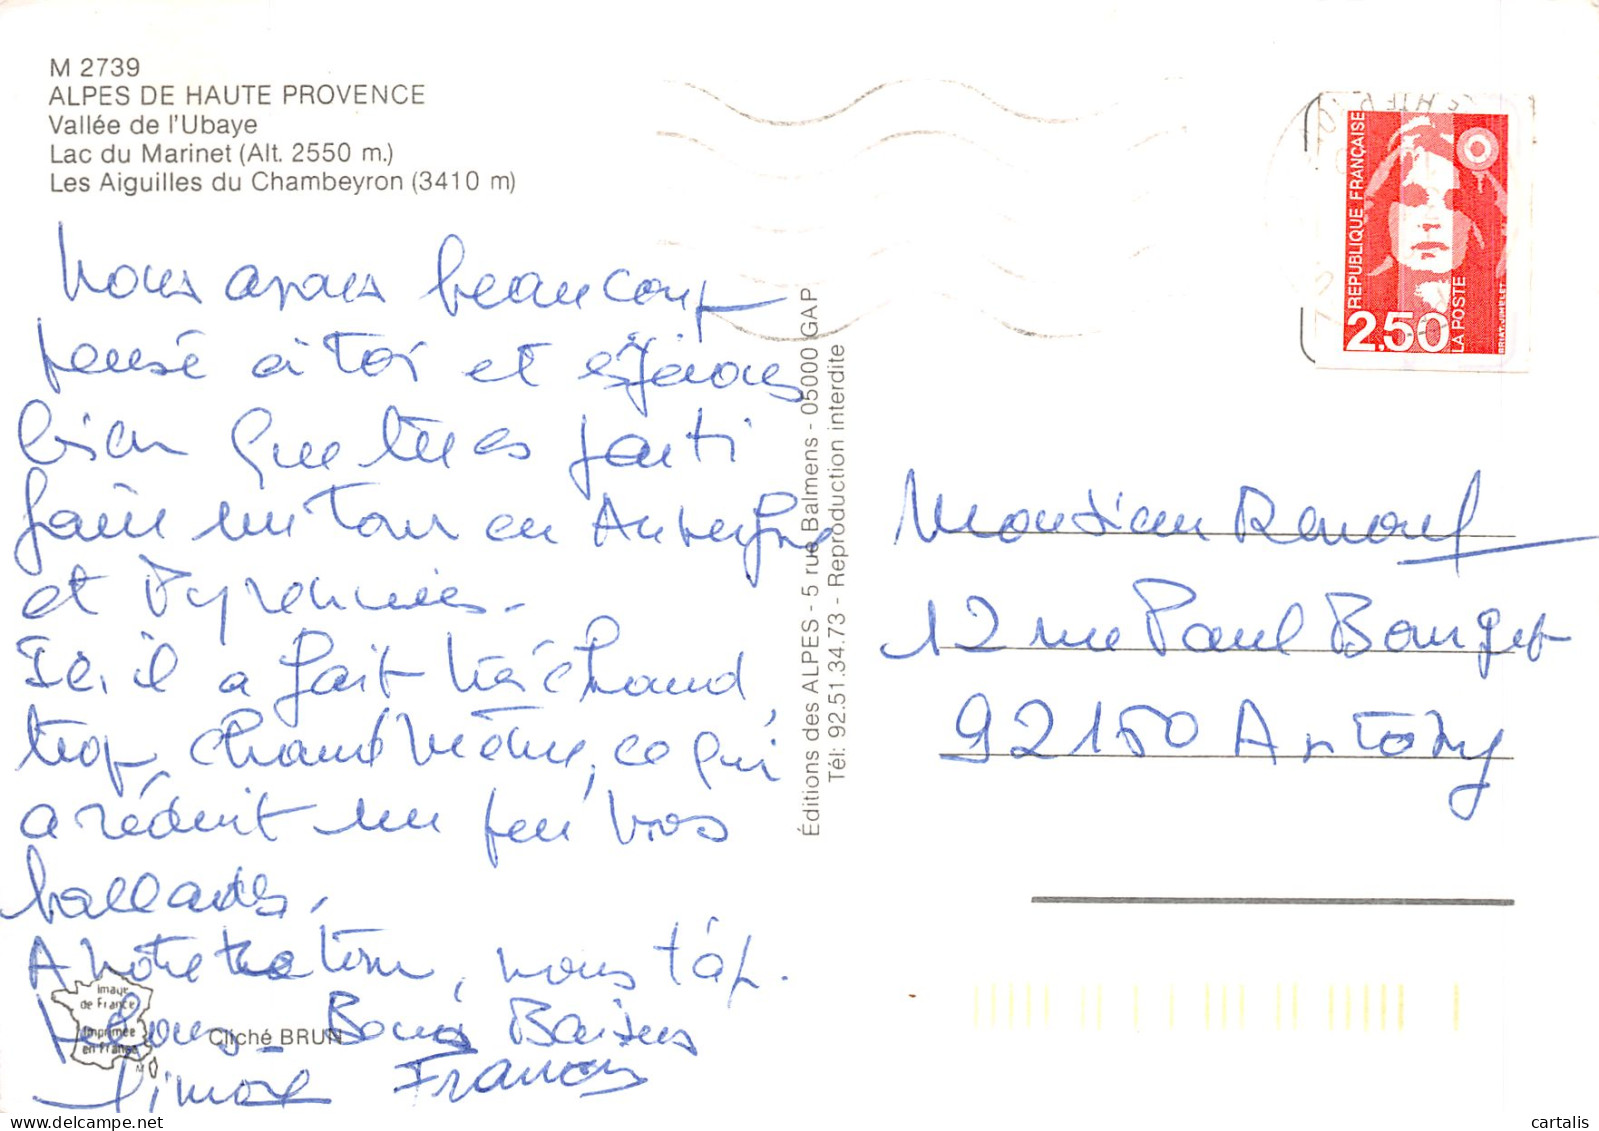 M 2739
ALPES DE HAUTE PROVENCE
Vallée de l'Ubaye
Lac du Marinet (Alt. 2550 m.)
Les Aiguilles du Chambeyron (3410 m)
Nous avons beaucoup
pensé à toi et espérons
bien que tu es parti
faire un tour en Auvergne
et Pyrennées.
Ici il a fait très chaud,
trop chaud même, ce qui
a réduit un peu nos
ballades.
A notre retour, nous t'ap-
pelons. Bons Baisers
Simone François
Image
de France
Imprimée
en France
Cliché BRUN
Éditions des ALPES - 5 rue Balmens - 05000 GAP
Tél: 92.51.34.73 - Reproduction interdite
REPUBLIQUE FRANÇAISE
2,50
LA POSTE
BRIAT-JUMELET
Monsieur Renouf
12 rue Paul Bourget
92160 Antony
cartalis